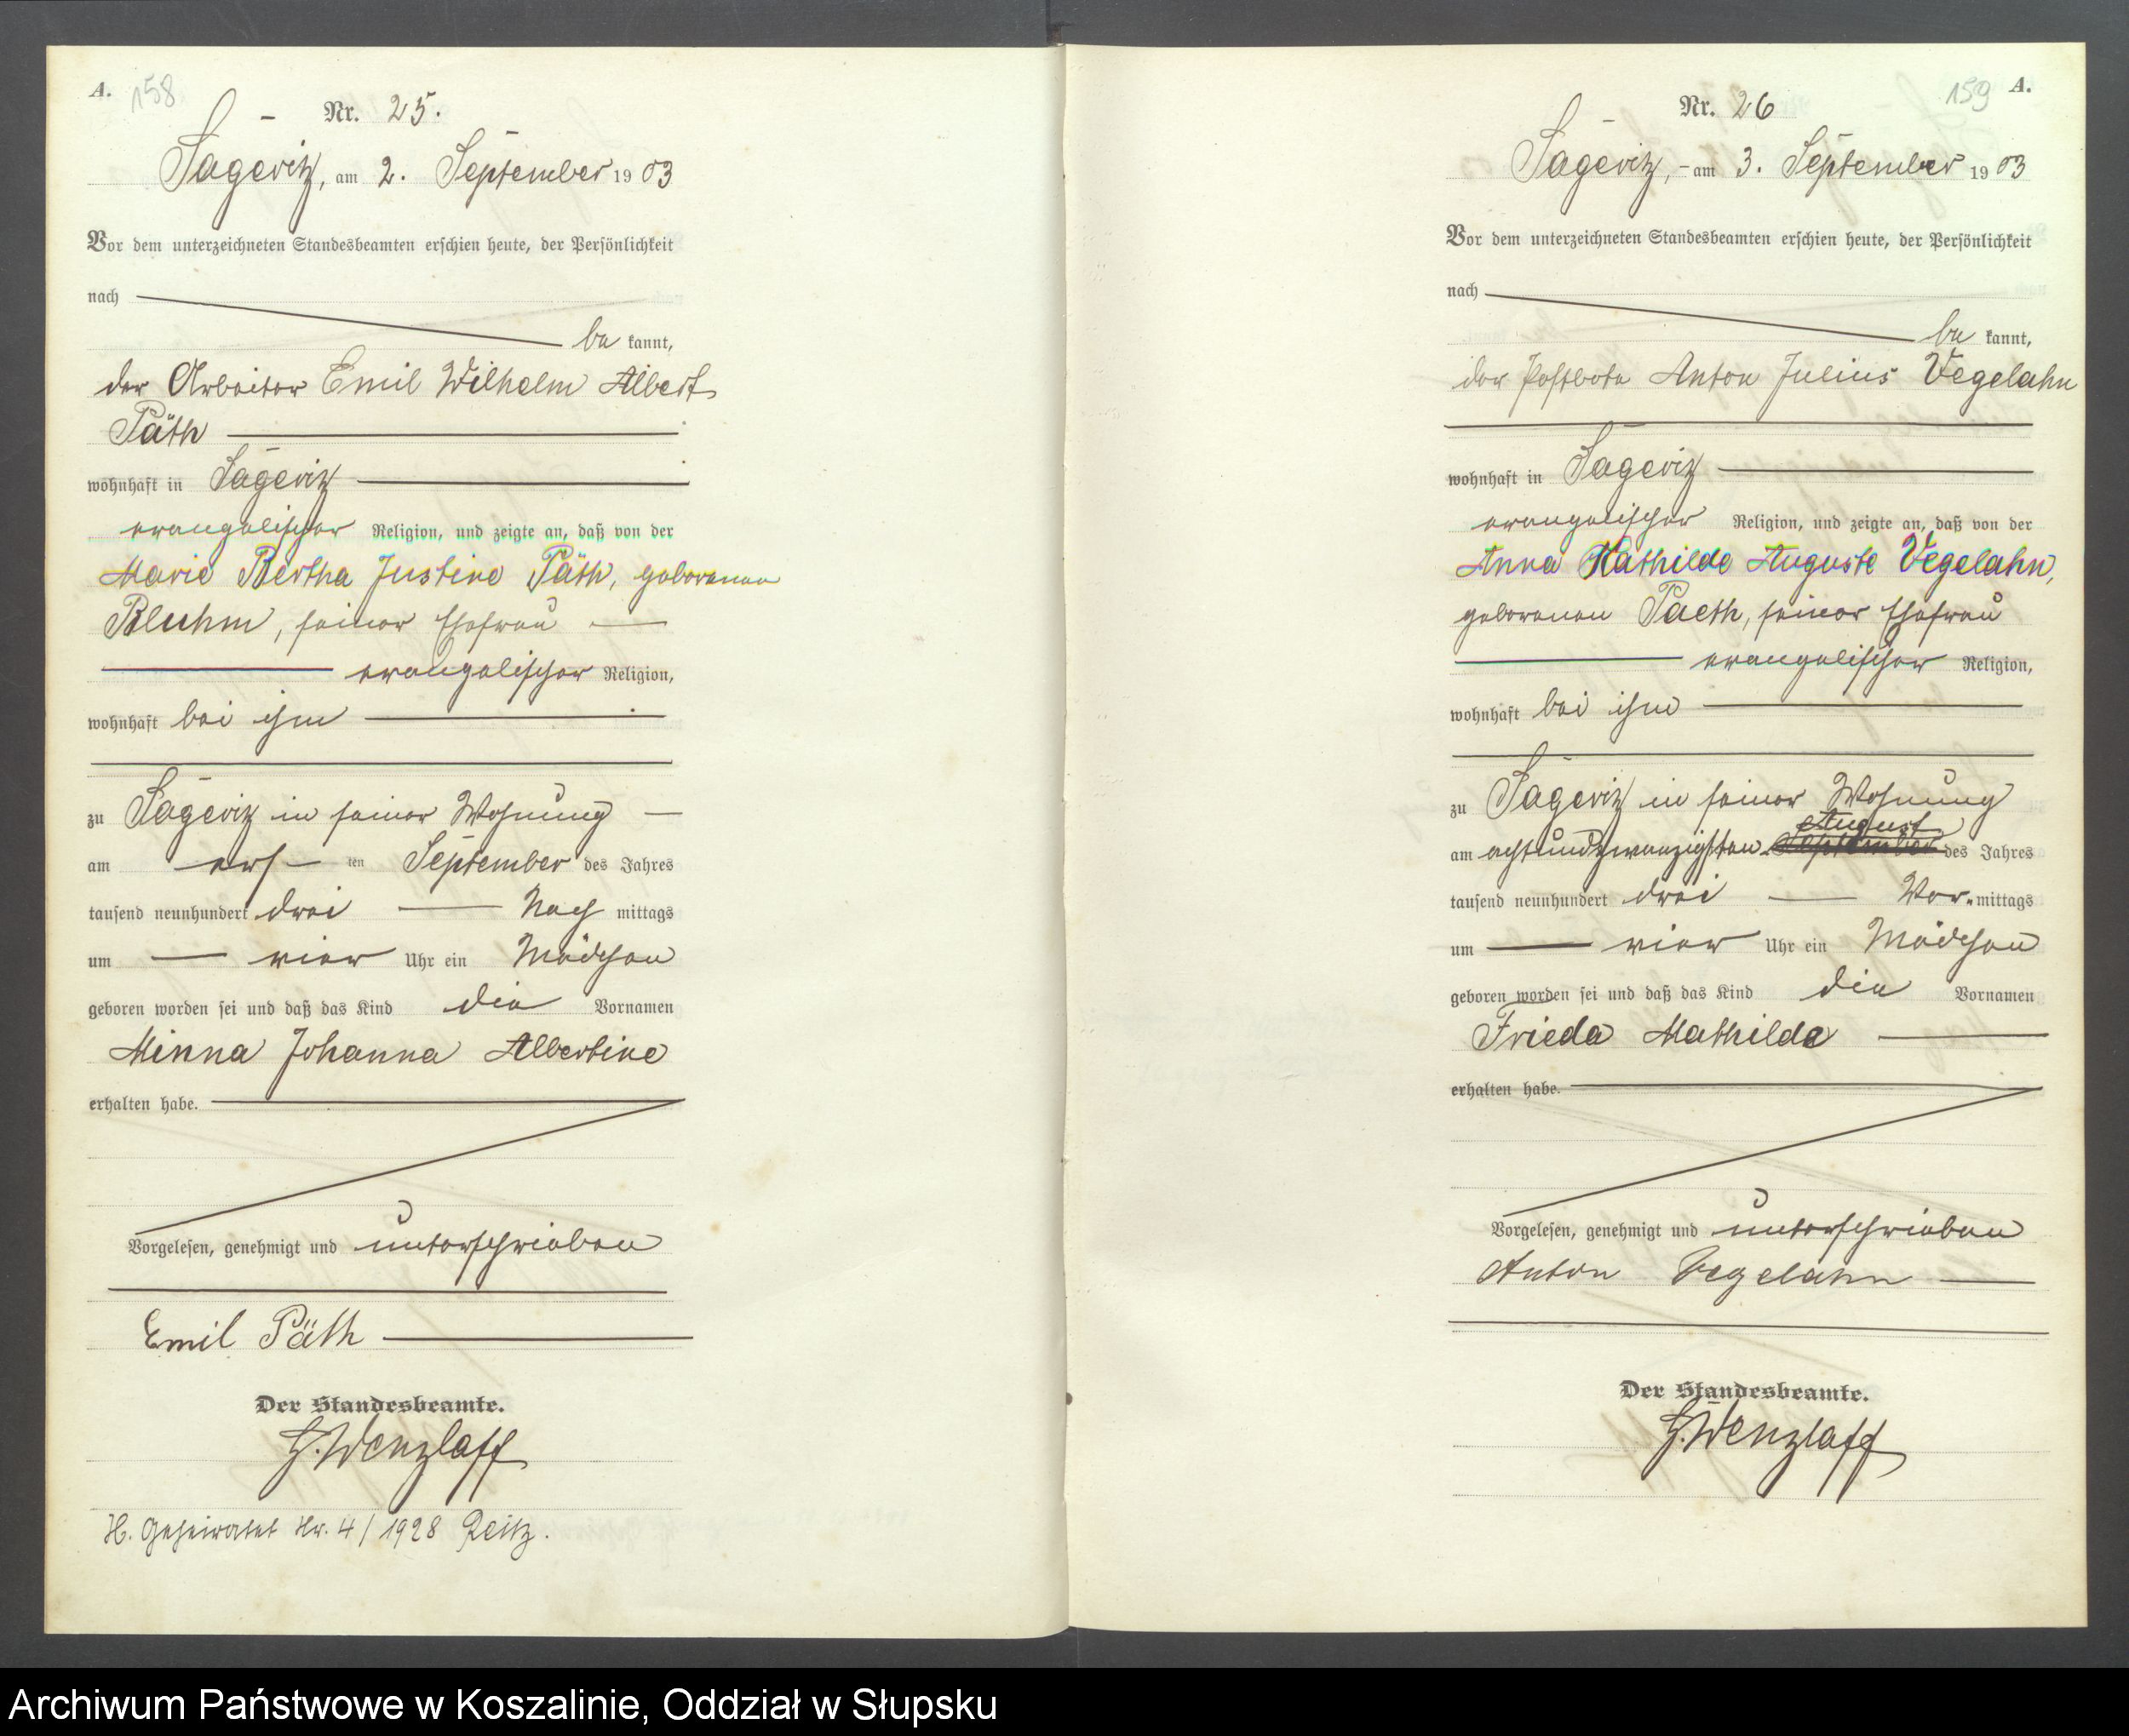 A. 158
Nr. 25.
Sageritz, am 2. September 1903
Vor dem unterzeichneten Standesbeamten erschien heute, der Persönlichkeit
nach
be kannt,
der Arbeiter Emil Wilhelm Albert
Päth
wohnhaft in Sageritz
evangelischer Religion, und zeigte an, daß von der
Marie Bertha Justine Päth, geborenen
Bluhm, seiner Ehefrau
evangelischer Religion,
wohnhaft bei ihm
zu Sageritz in seiner Wohnung
am ers ten September des Jahres
tausend neunhundert drei Nach mittags
um vier Uhr ein Mädchen
geboren worden sei und daß das Kind die Vornamen
Minna Johanna Albertine
erhalten habe.
Vorgelesen, genehmigt und unterschrieben
Emil Päth
Der Standesbeamte.
G. Wenzlaff
H. Geheiratet Nr. 4/1928 Reitz.
159 A.
Nr. 26
Sageritz, am 3. September 1903
Vor dem unterzeichneten Standesbeamten erschien heute, der Persönlichkeit
nach
be kannt,
der Postbote Anton Julius Vegelahn
wohnhaft in Sageritz
evangelischer Religion, und zeigte an, daß von der
Anna Mathilde Auguste Vegelahn,
geborenen Paeth, seiner Ehefrau
evangelischer Religion,
wohnhaft bei ihm
zu Sageritz in seiner Wohnung
August
am achtundzwanzigsten September des Jahres
tausend neunhundert drei Vor-mittags
um vier Uhr ein Mädchen
geboren worden sei und daß das Kind die Vornamen
Frieda Mathilde
erhalten habe.
Vorgelesen, genehmigt und unterschrieben
Anton Vegelahn
Der Standesbeamte.
G. Wenzlaff
Archiwum Państwowe w Koszalinie, Oddział w Słupsku